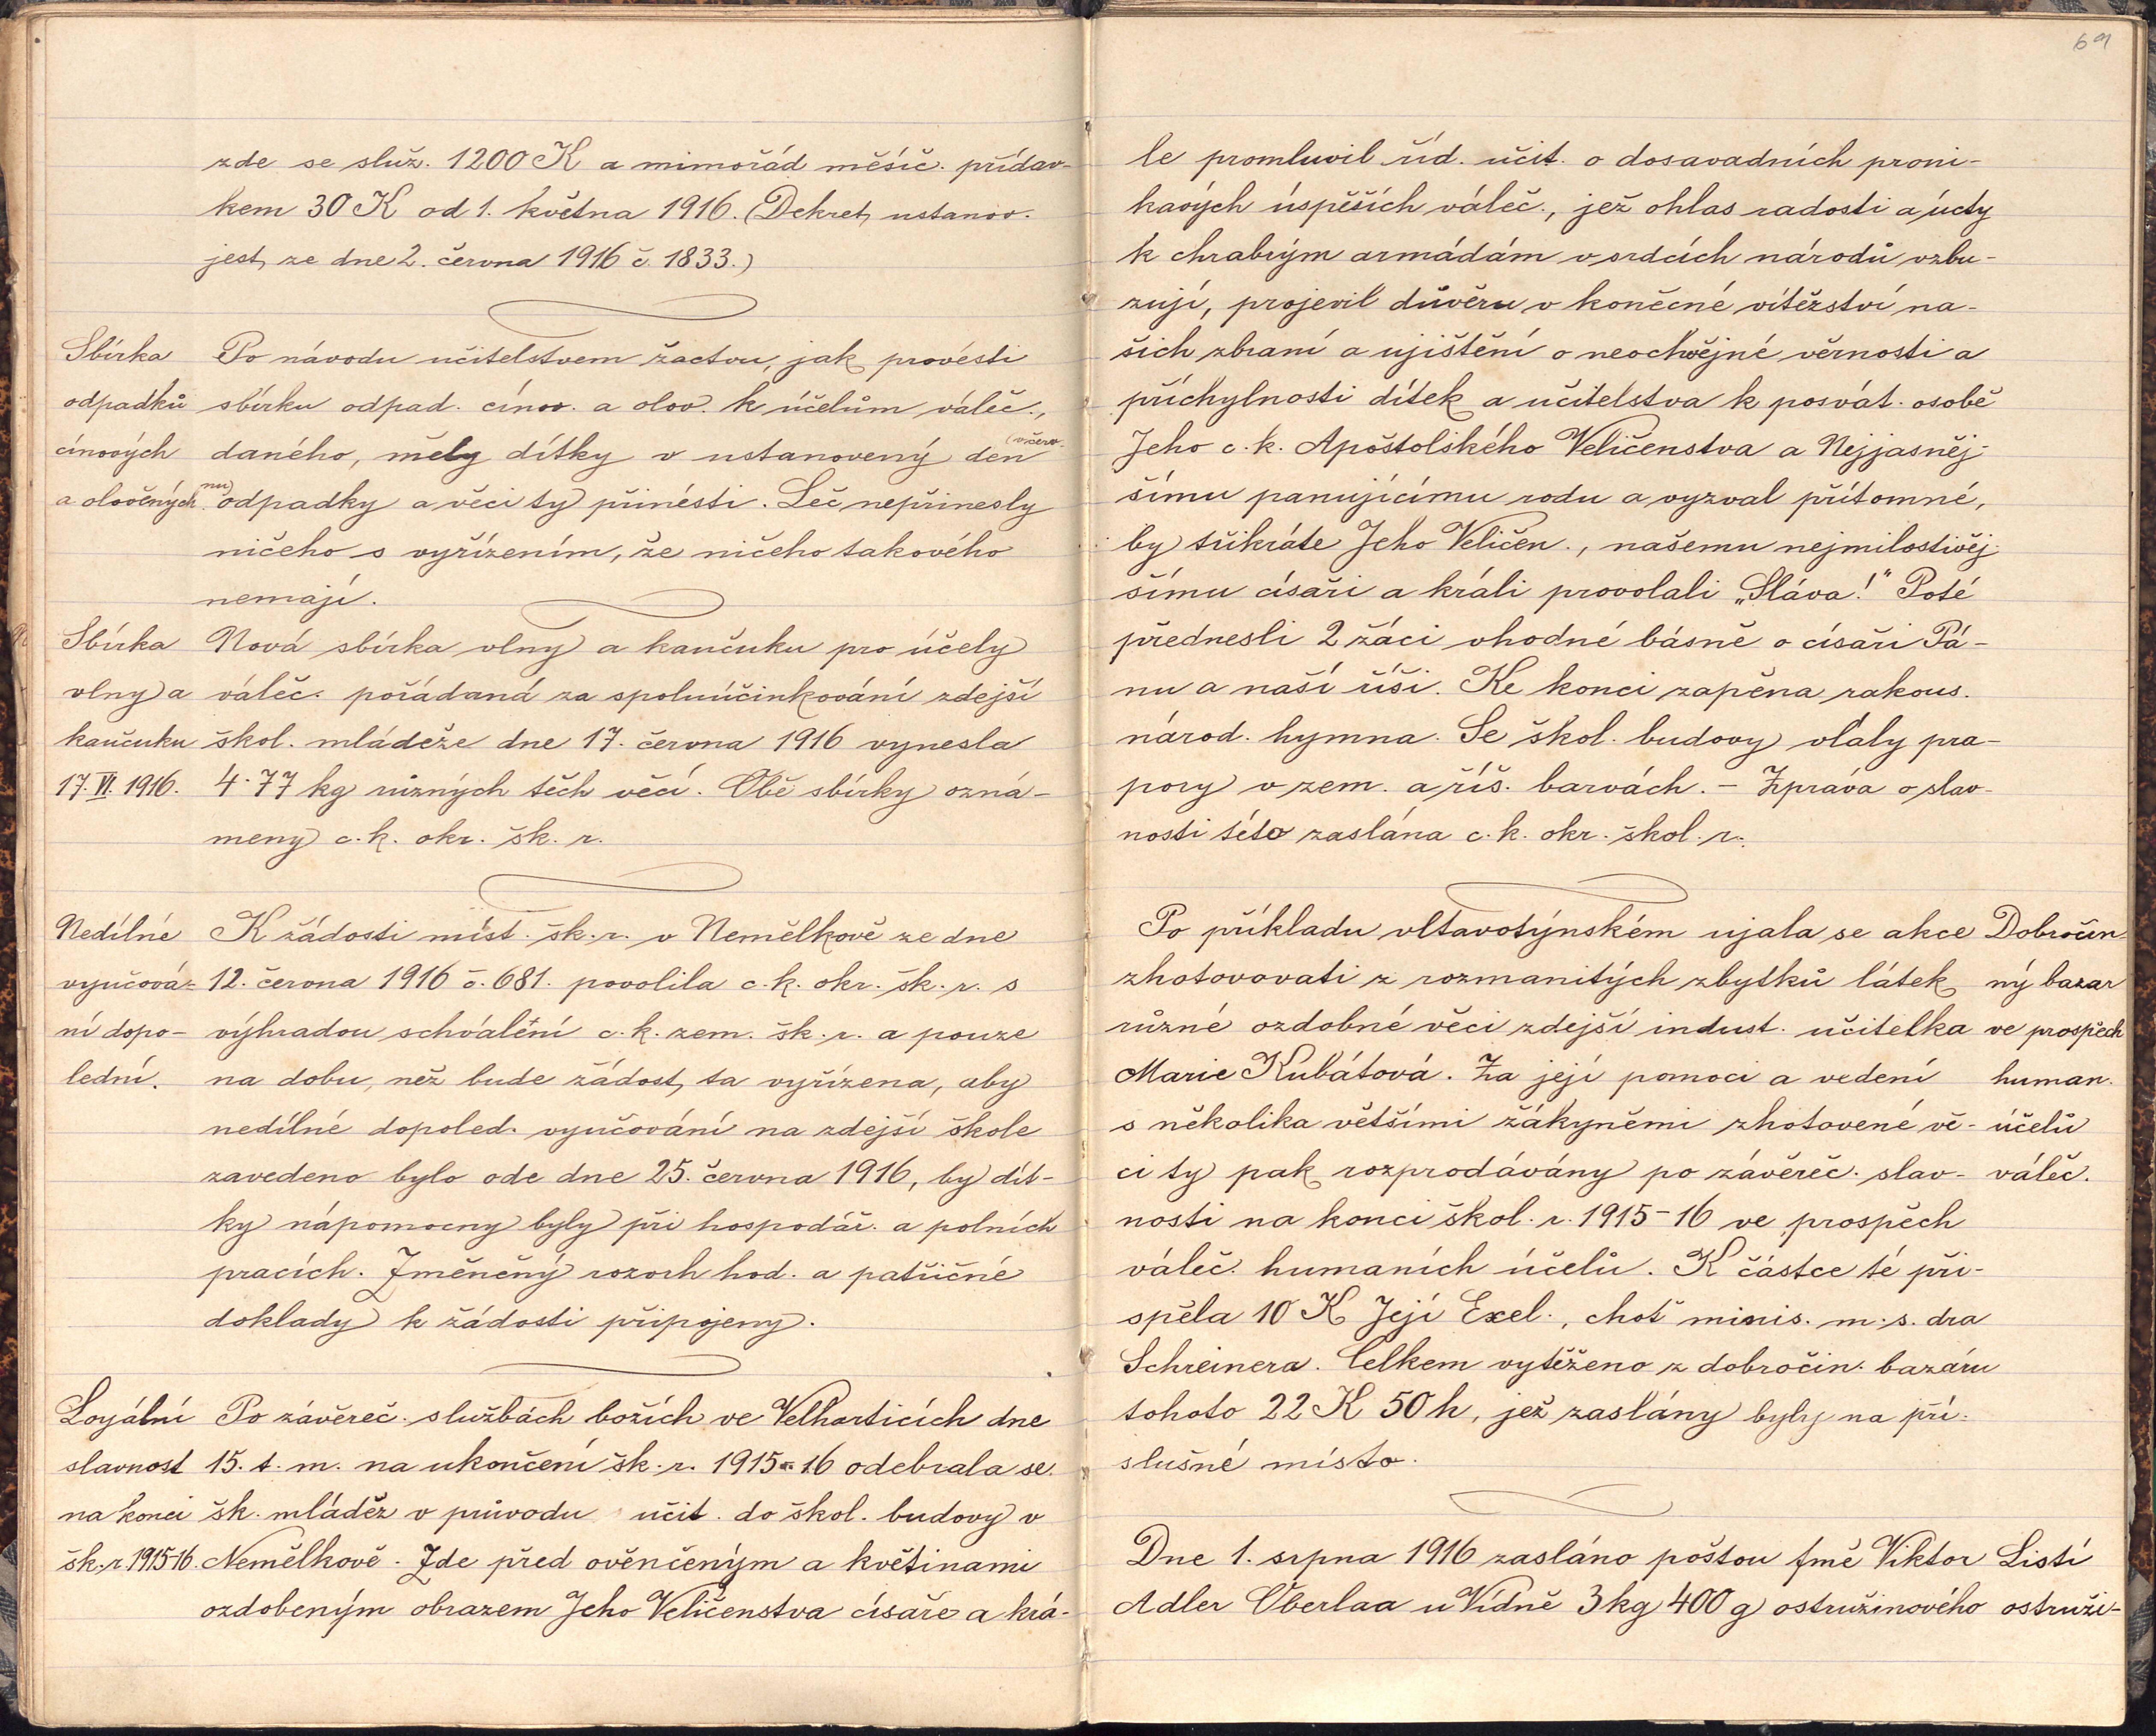 zde se služ. 1200 K a mimořád měsíč. přídav-
kem 30 K od 1. května 1916. (Dekret ustanov.
jest ze dne 2. června 1916 č. 1833.)
Sbírka Po návodu učitelstvem žactvu, jak provésti
odpadků sbírku odpad. cínov. a olov. k účelům váleč.,
cínových daného, měly dítky v ustanovený den
a olověných odpadky a věci ty přinésti. Leč nepřinesly
ničeho s vyřízením, že ničeho takového
nemají.
Sbírka Nová sbírka vlny a kaučuku pro účely
vlny a váleč. pořádaná za spoluúčinkování zdejší
kaučuku škol. mládeže dne 17. června 1916 vynesla
17. VI. 1916. 4·77 kg různých těch věcí. Obě sbírky ozná-
meny c. k. okr. šk. r.
Nedílné K žádosti míst. šk. r. v Nemělkově ze dne
vyučová- 12. června 1916 č. 681. povolila c. k. okr. šk. r. s
ní dopo- výhradou schválení c. k. zem. šk. r. a pouze
lední. na dobu, než bude žádost ta vyřízena, aby
nedílné dopoled. vyučování na zdejší škole
zavedeno bylo ode dne 25. června 1916, by dít-
ky nápomocny byly při hospodář. a polních
pracích. Změněný rozvrh hod. a patřičné
doklady k žádosti připojeny.
Loyální Po závěreč. službách božích ve Velharticích dne
slavnost 15. t. m. na ukončení šk. r. 1915-16 odebrala se
na konci šk. mládež v průvodu učit. do škol. budovy v
šk. r. 1915-16. Nemělkově. Zde před ověnčeným a květinami
ozdobeným obrazem Jeho Veličenstva císaře a krá-
69
le promluvil říd. učit. o dosavadních proni-
kavých úspěších váleč., jež ohlas radosti a úcty
k chrabrým armádám v srdcích národů vzbu-
zují, projevil důvěru v konečné vítězství na-
šich zbraní a ujištění o neochvějné věrnosti a
příchylnosti dítek a učitelstva k posvát. osobě
Jeho c. k. Apoštolského Veličenstva a Nejjasněj-
šímu panujícímu rodu a vyzval přítomné,
by třikráte Jeho Veličen., našemu nejmilostivěj-
šímu císaři a králi provolali „Sláva!" Poté
přednesli 2 žáci vhodné básně o císaři Pá-
nu a naší říši. Ke konci zapěna rakous.
národ. hymna. Se škol. budovy vlály pra-
pory v zem. a říš. barvách. - Zpráva o slav-
nosti této zaslána c. k. okr. škol. r.
Po příkladu vltavotýnském ujala se akce Dobročin-
zhotovovati z rozmanitých zbytků látek ný bazar
různé ozdobné věci zdejší indust. učitelka ve prospěch
Marie Kubátová. Za její pomoci a vedení human.
s několika většími žákyněmi zhotovené vě- účelů
ci ty pak rozprodávány po závěreč. slav- váleč.
nosti na konci škol. r. 1915-16 ve prospěch
váleč. humaních účelů. K částce té při-
spěla 10 K Její Exel., choť minis. m. s. dra
Schreinera. Celkem vytěženo z dobročin. bazáru
tohoto 22 K 50 h, jež zaslány byly na pří-
slušné místo.
Dne 1. srpna 1916 zasláno poštou fmě Viktor Listí
Adler Oberlaa u Vídně 3 kg 400 g ostružinového ostruži-